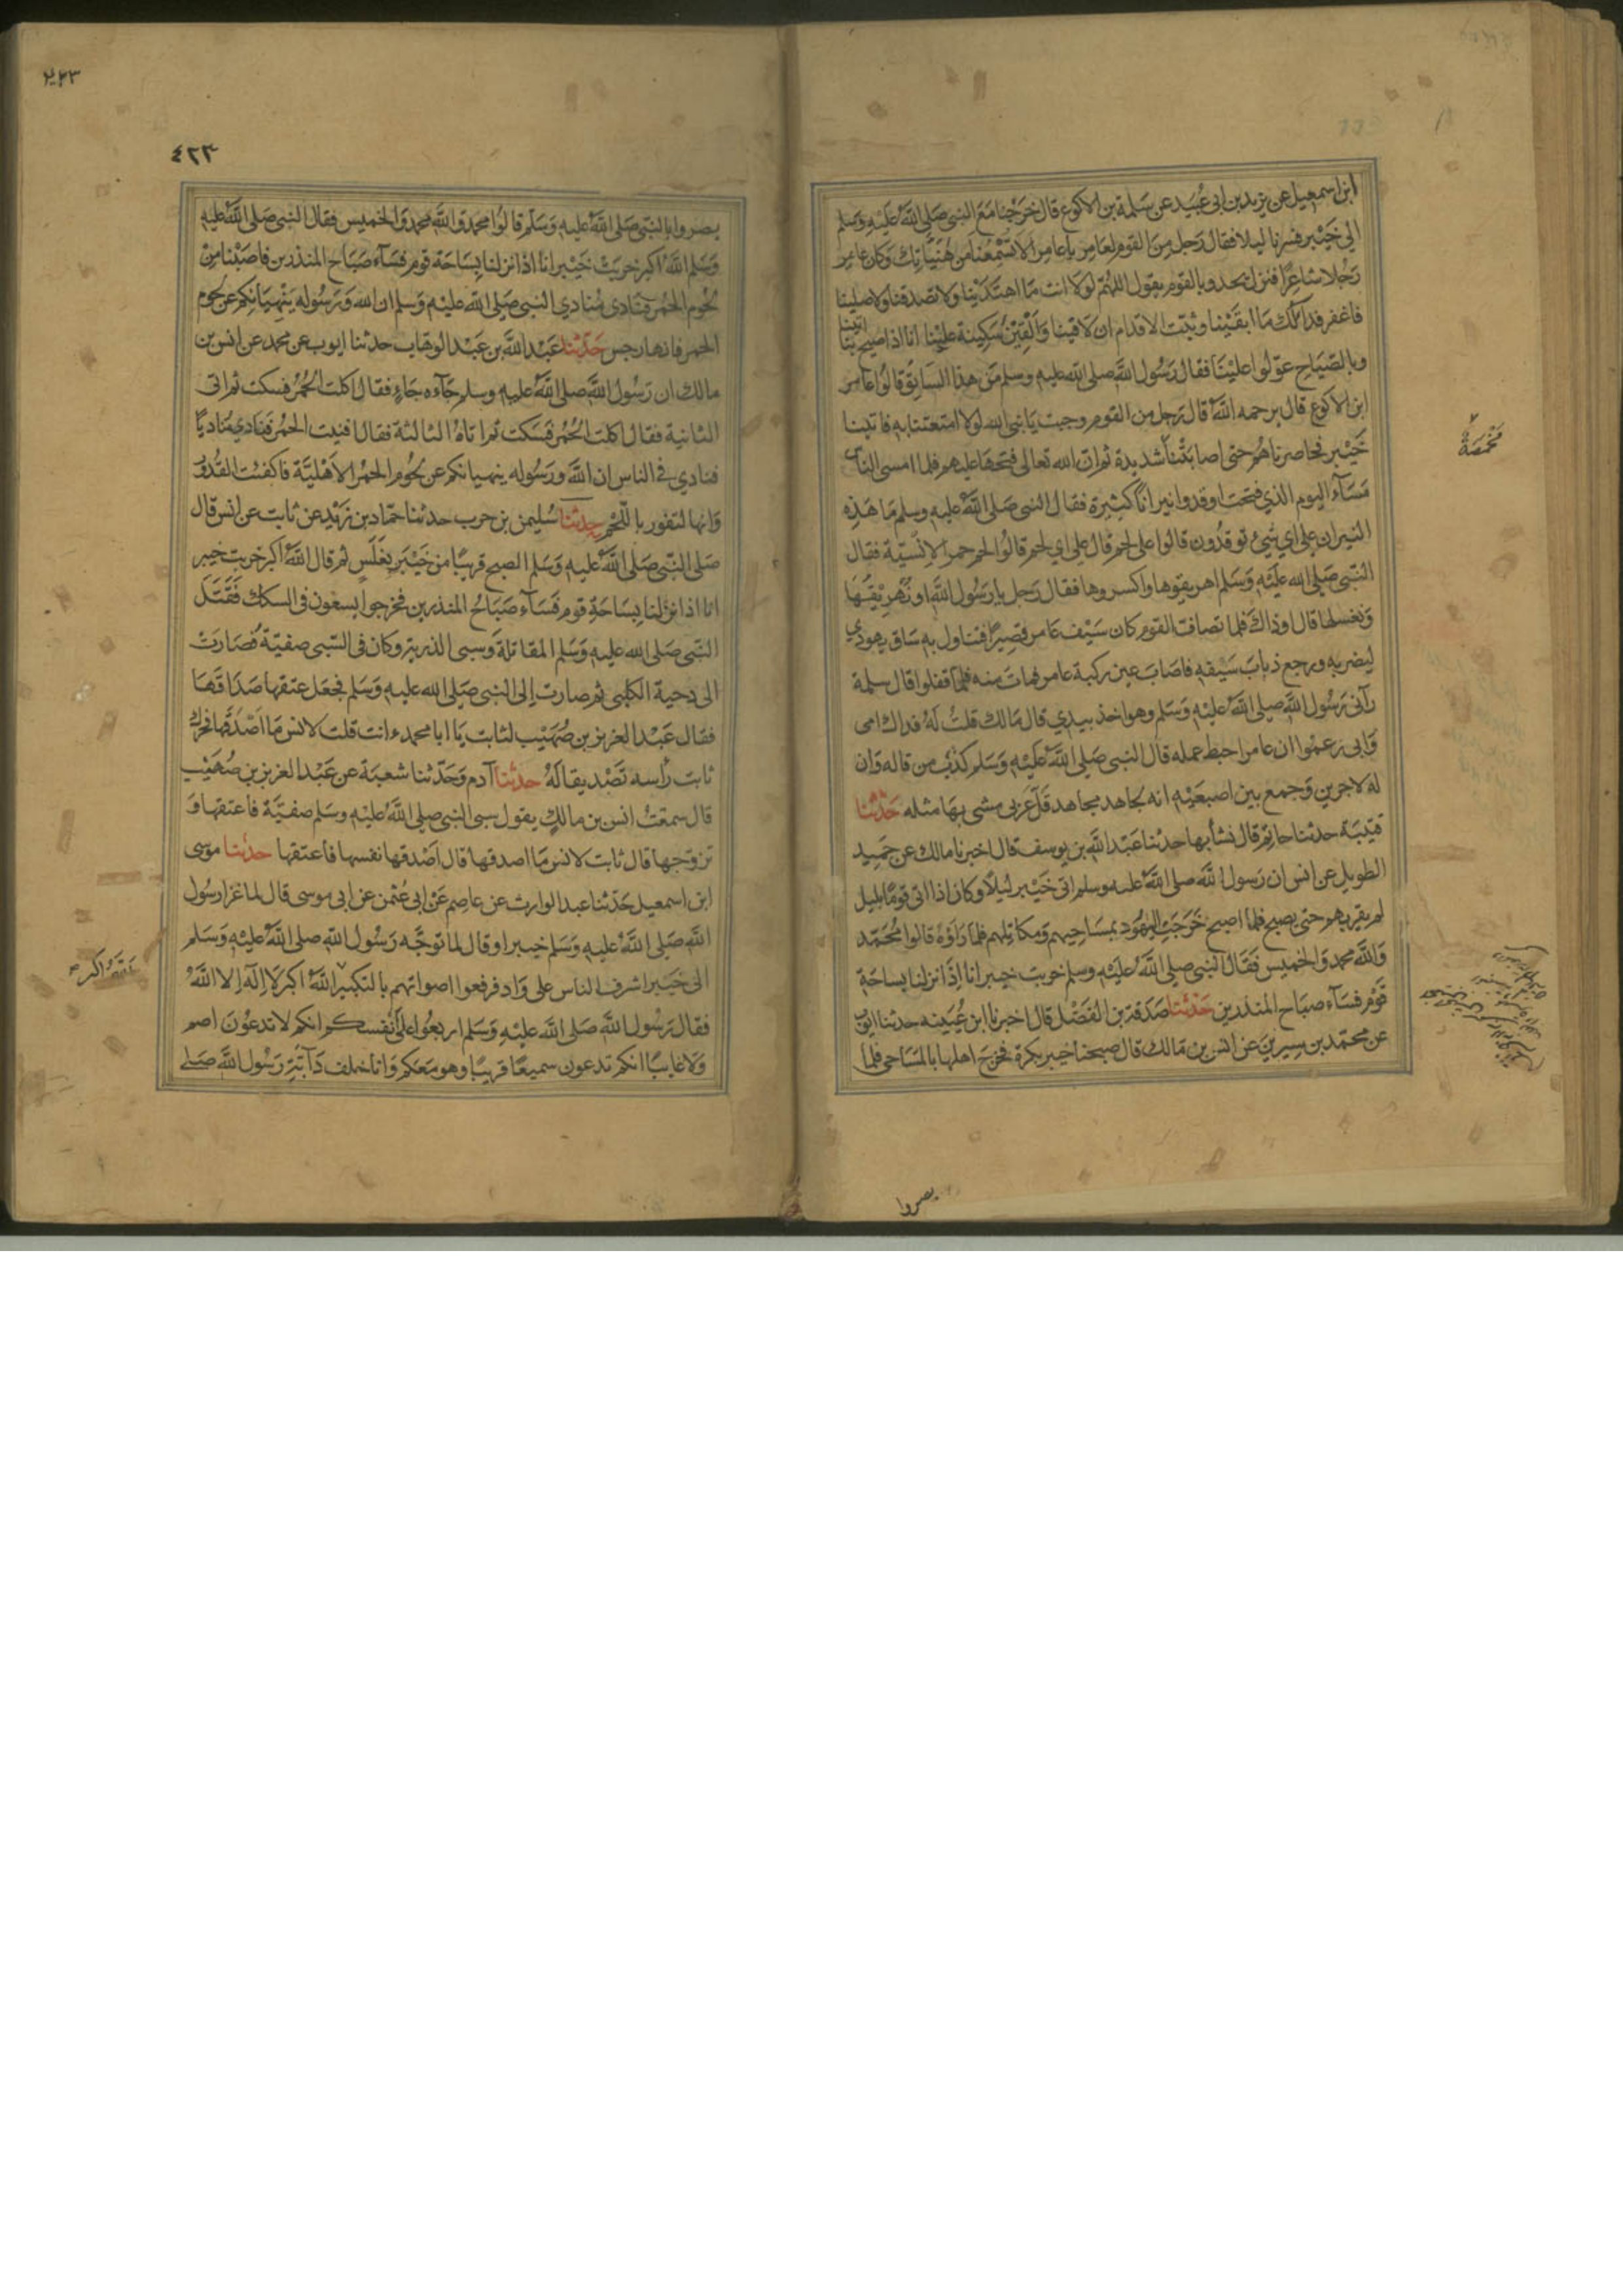 ابن اسمعيل عن يزيد بن ابى عُبَيد عن سَلمة بن الاكوع قال خرَجْنا مَعَ النبى صَلى اللهُ عَليْهِ وَسَلم
الى خَيْبر فسِرنا ليلا فقال رَجل مِنَ القوم لعَامِر يا عامر الا تُسْمِعُنا من هُنَيَّاتِك وَكان عامر
رَجُلا شاعِرًا فنزل يحدو بالقوم يقول اللهُمّ لولا انت مَا اهتدَيْنا ولا تصَدقنا ولا صلينا
فاغفر فداً لك مَا ابقَيْنا وثبّت الاقدام ان لاقينا وَالْقِيَنْ سَكِينة عليْنا انا اذا صِيح بنا اتينا
وبالصّيَاح عوّلوا عليْنَا فقال رَسُول الله صلى الله عليه وسلم مَن هذا السَّائِق قالوا عامر
ابن الاكوع قال يرحمه اللهُ قال رَجل من القوم وجبت يَا نبى الله لولا امتعتنا به فاتينا
خَيْبر فحاصرناهُم حتى اصابتْنا شديدة ثم ان الله تعالى فتحهَا عليهم فلما امسى الناس
مَسَاء اليوم الذي فتحت اوقدوا نيرانًا كثيرة فقال النبى صَلى اللهُ عليه وسلم مَا هَذِه
النيران على اي شَيْء توقدُون قالوا على لحم قال على اي لحم قالوا لحم حمر الانسيّة فقال
النّبى صَلى الله عليْه وَسَلم اهريقوها واكسروها فقال رَجل يا رَسُول اللهِ او نُهَرِيْقُهَا
وَنغسلها قال او ذاك فلما تصافّ القوم كان سَيْف عَامر قصِيرًا فتناول به سَاق يهودي
ليضربه ويرجع ذباب سَيْفه فاصَابَ عين ركبة عامر فمات منه فلمّا قفلوا قال سلمة
رآنى رَسُول الله صلى الله عليْه وَسَلم وهو اخذ بيدي قال مَالك قلتُ لهُ فداك امى
وَابى زعمُوا ان عامرا حبط عمله قال النبى صَلى اللهُ عَليْه وَسَلم كذبَ من قاله وَان
له لاجرين وَجمع بين اصبعَيْه انه لجاهد مجاهد قَلَّ عَرَبى مشى بهَا مثله حَدّثنا
قتيْبَة حدثنا حاتِم قال نشأ بها حدثنا عَبْد الله بن يوسف قال اخبرنا مالك عن حمَيد
الطويل عن انس ان رَسول الله صلى اللهُ عليه وسلم اتى خَيْبر ليْلًا وكان اذا اتى قومًا بليل
لم يقربهم حتى يصبح فلما اصبح خَرَجَتِ اليَهُود بمسَاحيهم وَمكاتِلهم فلما رَاوْهُ قالوا مُحمّد
وَاللهِ محمد وَالخميس فقَال النبى صلى اللهُ عليْه وسلم خربت خيبر انا اذا نزلنا بساحَةِ
قَوْم فسَاء صبَاح المنذرين حَدّثنا صَدَقة بن الفَضْل قال اخبرنا ابن عُيَينة حدثنا ايوب
عن محمّد بن سِيرينَ عن انس بن مَالك قال صبحنا خيبر بكرة فخرَج اهلها بالمسَاحى فلما
مَخْمَصَةٌ
يصروا
٤٢٣
بصروا بالنّبى صَلى اللهُ عليه وَسَلم قالوا محمد وَاللهِ محمد وَالخميس فقال النبى صَلى اللهُ عليْه
وَسَلم اللهُ اكبر خربَتْ خَيْبر انا اذا نزلنا بِسَاحَة قوم فسَاء صَبَاح المنذرين فاصَبْنا مِنْ
لحُوم الحُمر فنَادى مُنادي النبى صَلى الله عليْه وَسلم ان الله وَرَسُوله يَنْهيَانكم عن لحوم
الحمر فانها رجس حَدّثنا عَبْد الله بن عَبْد الوهّاب حدثنا ايوب عن محمد عن انس بن
مالك ان رَسُول الله صلى اللهُ عليه وسلم جَاءه جَاءٍ فقال اكلت الحُمُر فسكت ثم اتى
الثانية فقال اكلت الحُمُر فسَكت ثم اتاهُ الثالثة فقال افنيت الحُمُر فنَادى مُناديًا
فنادي في الناس ان اللهَ ورَسُوله ينهيانكم عن لحُوم الحمُر الاهْليَّة فاكفئت القُدُورُ
وَانها لتفور باللّحْم حدثنا سُليمن بن حرب حدثنا حمّاد بن زَيْد عن ثابت عن انس قال
صَلى النّبى صَلى اللهُ عليه وَسَلم الصبح قريبًا من خَيْبَر بغَلَسٍ ثم قال اللهُ اكبر خربت خيبر
انا اذا نزلنا بسَاحَةِ قوم فَسَاء صَبَاحُ المنذرين فخرجوا يسعون فى السكك فَقَتَل
النّبى صَلى الله عليه وَسَلم المقاتلة وَسبى الذرية وكان فى السّبى صفيّة فَصَارَتْ
الى دحية الكلبى ثم صارت الى النبى صَلى الله عليه وَسَلم فجعَل عتقها صَدَاقَهَا
فقال عَبْد العزيز بن صُهَيْب لثابت يَا ابا محمد ءانت قلت لانس مَا اصْدَقَها فحرك
ثابت رأسه تَصْديقا لهُ حدثنا آدم وَحَدّثنا شعبَة عن عَبْد العزيز بن صُهَيْب
قال سمعْتُ انس بن مالكٍ يقول سبى النبى صلى اللهُ عليْه وسَلم صفيَّة فاعتقها وَ
تزوّجها قال ثابت لانس مَا اصدقها قال اصْدقها نفسها فاعتقها حدثنا موسى
ابن اسمعيل حَدّثنا عبد الوارث عن عاصِم عَنْ ابى عُثمن عن ابى موسى قال لما غزا رسُول
اللهِ صَلى اللهُ عليه وَسَلم خيبر او قال لما توجَّه رَسُول الله صلى اللهُ عليْه وَسَلم
الى خَيْبر اشرف الناس على وَادٍ فرفعوا اصواتهم بالتكبير اللهُ اكبر لَا اِلَه الا اللهُ
فقال رَسُول الله صَلى الله عليْهِ وَسَلم اربعُوا على اَنْفسكم انكم لا تدعُونَ اصم
وَلَا غايبًا انكم تدعون سميعًا قريبًا وهو معَكم وَانا خلف دَابّةِ رَسُول الله صَلى
اللهُ اكبر